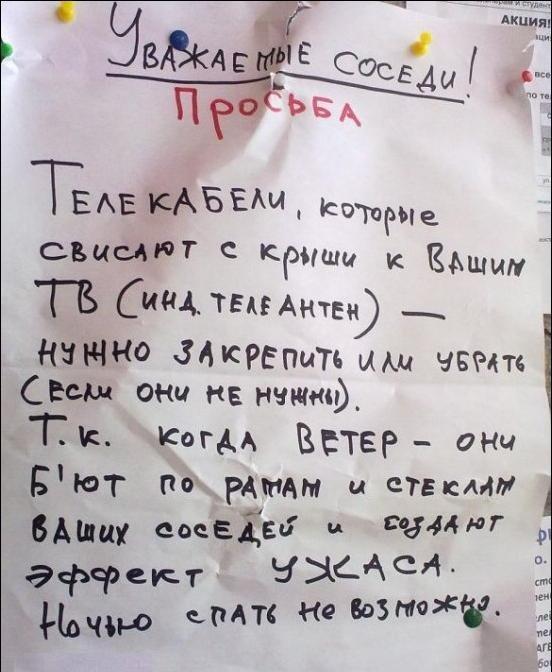 Уважаемые соседи!
Просьба
Телекабели, которые
свисают с крыши к Вашим
ТВ (инд. теле антен) —
нужно закрепить или убрать
(если они не нужны).
Т.к. когда ветер - они
б'ют по рамам и стеклам
ваших соседей и создают
эффект УЖАСА.
Ночью спать не возможно.
АКЦИЯ!